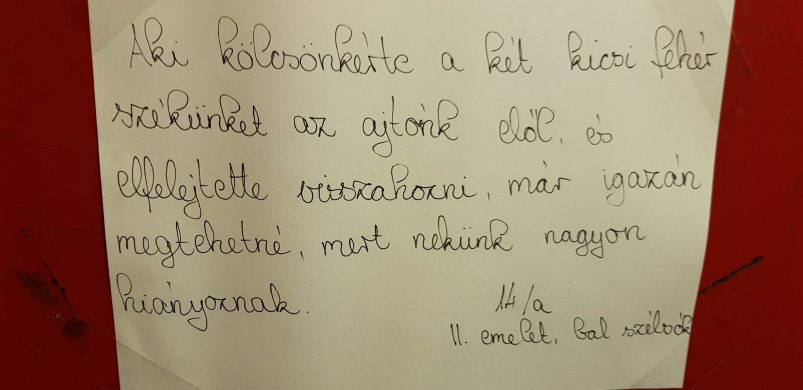 Aki kölcsönkérte a két kicsi fehér
székünket az ajtónk elől, és
elfelejtette visszahozni, már igazán
megtehetné, mert nekünk nagyon
hiányoznak.
14/a
II. emelet, bal szélsők